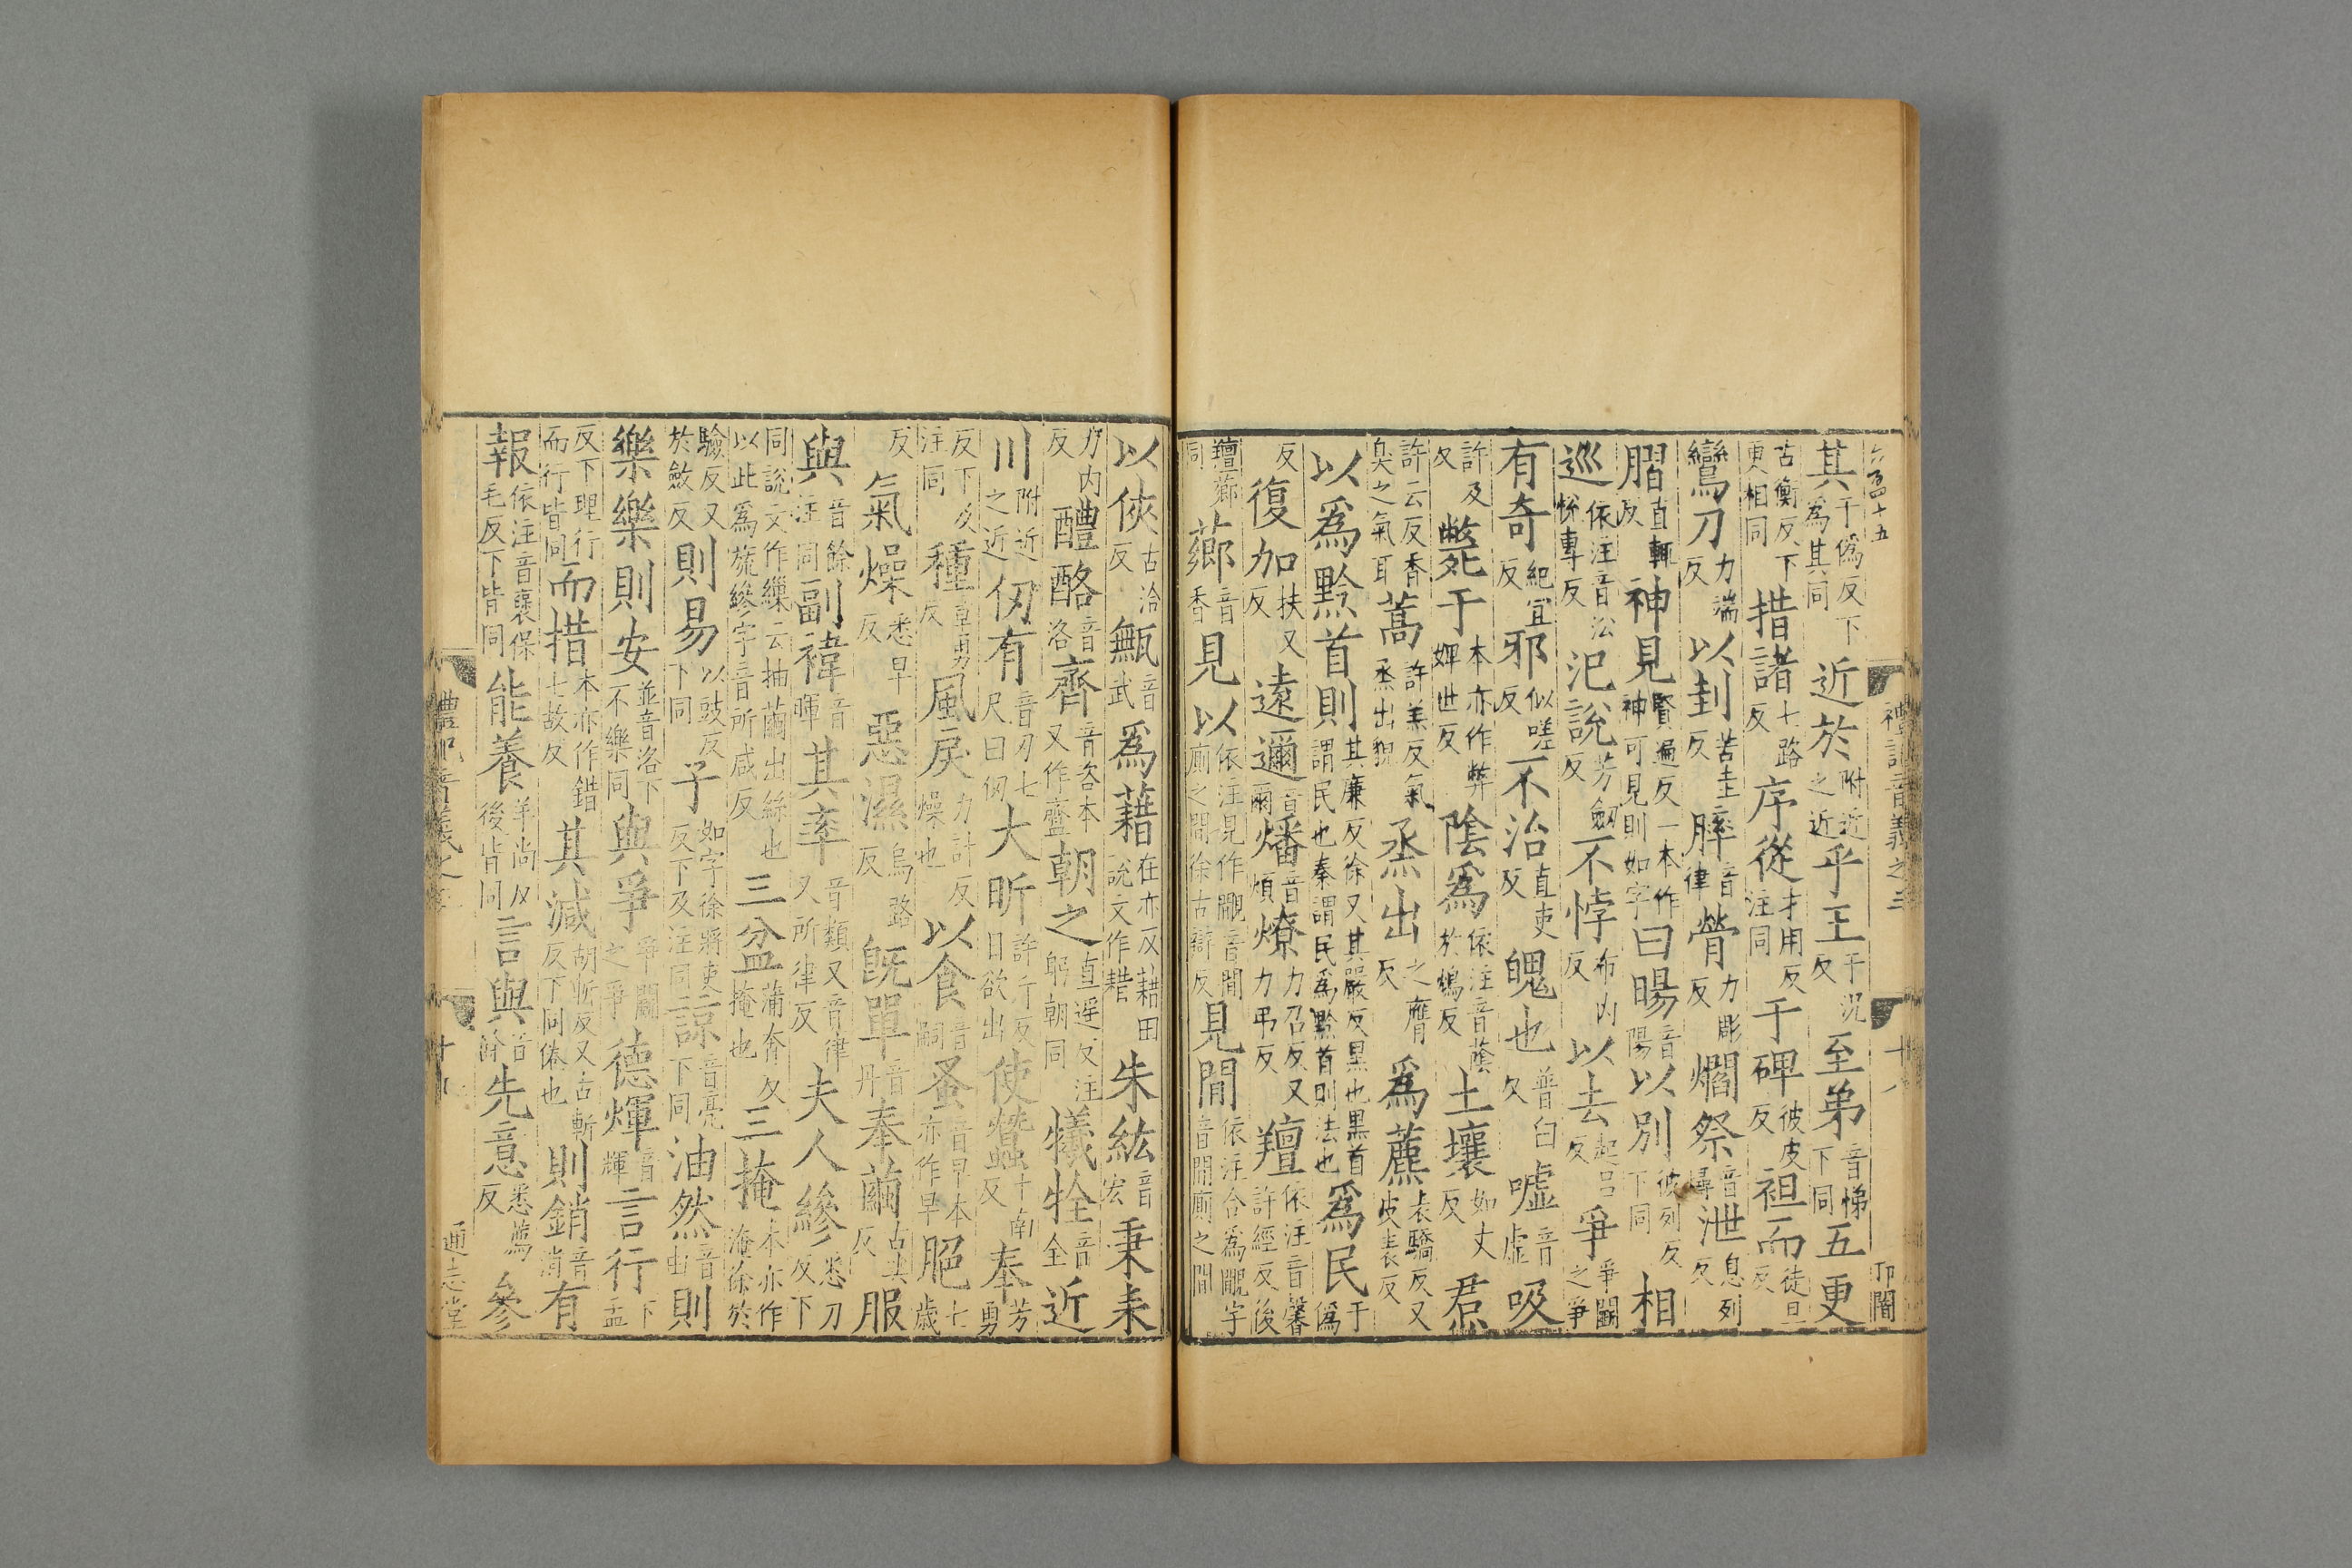 禮記音義之三
十八
印閣
其于僞反下爲其同近於附近之近乎王于況反至弟音悌下同五更
古衡反下更相同措諸七路反序從才用反注同于碑彼皮反袒而徒旦反
鸞刀力端反以刲苦圭反膟音律膋力彫反爓祭音尋泄息列反
膶直輒反神見賢遍反一本作神可見則如字曰暘音陽以別彼列反下同相
巡依注音沿恱專反汜說芳劒反不悖布内反以去起呂反爭爭鬭之爭
有奇紀宜反邪似嗟反不治直吏反魄也普白反噓音虛吸
許及反斃于本亦作弊婢世反陰爲依注音蔭於鴆反土壤如丈反焄
許云反香臭之氣耳蒿許羔反氣烝出貌烝出之膺反爲藨表驕反又皮表反
以爲黔首則其廉反徐又其嚴反黒也黒首謂民也秦謂民爲黔首則法也爲民于僞
反復加扶又反遠邇音爾燔音煩燎力召反又力弔反羶依注音馨許經反後
羶薌同薌音香見以依注見作覸音間廁之間徐古辯反見閒依注合爲覸字音閒廁之閒
以俠古洽反甒音武爲藉在亦反藉田說文作耤朱紘音宏秉耒
力内反醴酪音洛齊音咨本又作齍朝之直遥反注躬朝同犧牷音全近
川附近之近仞有音刃七尺曰仞大昕許斤反日欲出使蠶十南反奉芳勇
反下及注同種章勇反風戾力計反燥也以食音嗣蚤音早本亦作早脃七歲
反氣燥悉早反惡濕烏路反旣單音丹奉繭古典反服
與音餘注同副褘音暉其率音類又音律又所律反夫人繅悉刀反下
同說文作繰云抽繭出絲也以此爲旒縿字音所咸反三盆蒲奔反掩也三掩本亦作淹徐於
驗反又於斂反則易以豉反下同子如字徐將吏反下及注同諒音亮下同油然音由則
樂樂則安並音洛下不樂同與爭爭鬭之爭德煇音輝言行下孟
反下理行而行皆同而措本亦作錯七故反其減胡斬反又古斬反下同倦也則銷音消有
報依注音襃保毛反下皆同能養羊尚反後皆同言與音餘先意悉薦反參
通志堂